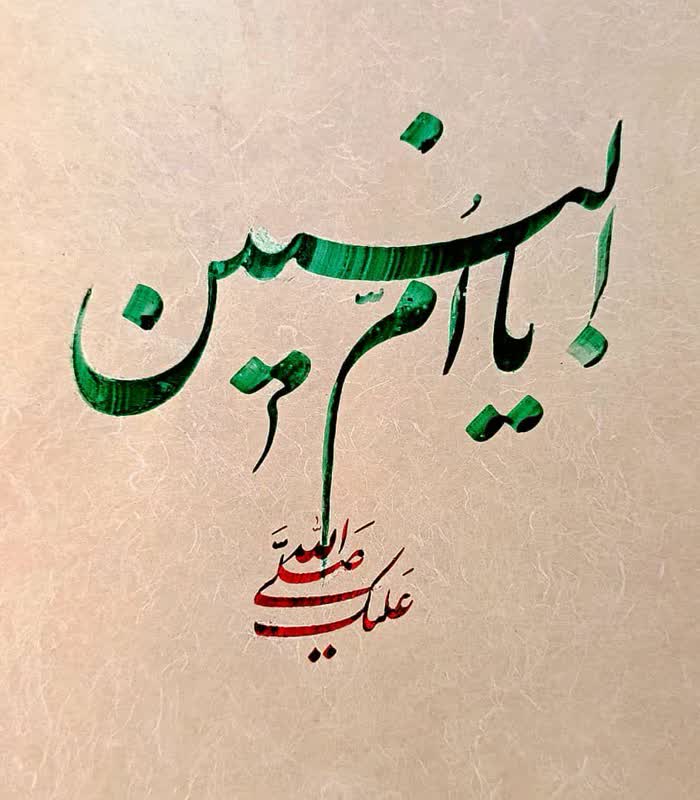 یا اُمّ البنین
صَلَّی اللّٰه
عَلیک